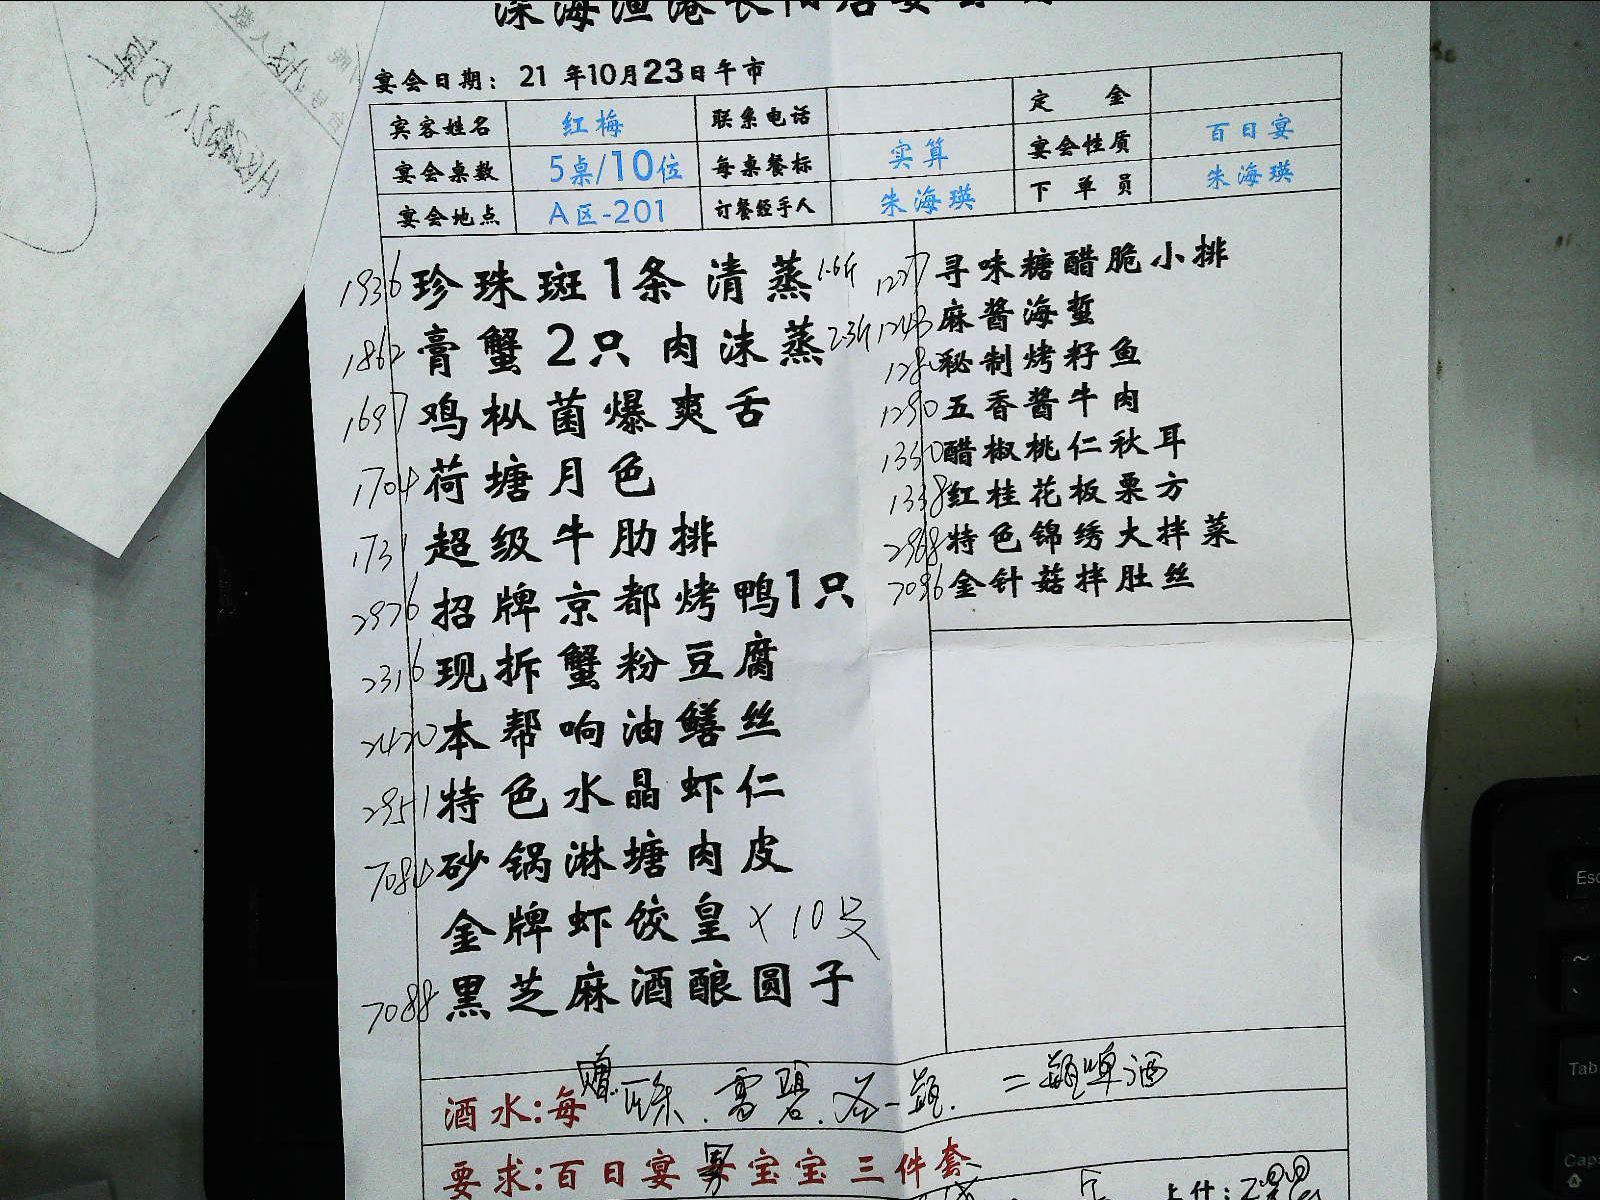 深海渔港长阳店宴会
宴会日期: 21 年10月23日午市
宾客姓名 红梅 联系电话 定 金
宴会桌数 5桌/10位 每桌餐标 实算 宴会性质 百日宴
宴会地点 A区-201 订餐经手人 朱海瑛 下 单 员 朱海瑛
1936 珍珠斑1条 清蒸 1.6斤
1862 膏蟹2只 肉沫蒸 2.3斤
1697 鸡枞菌爆爽舌
1704 荷塘月色
1731 超级牛肋排
2976 招牌京都烤鸭1只
2316 现拆蟹粉豆腐
2420 本帮响油鳝丝
2951 特色水晶虾仁
7084 砂锅淋塘肉皮
金牌虾饺皇 ×10只
7088 黑芝麻酒酿圆子
1227 寻味糖醋脆小排
1243 麻酱海蜇
1280 秘制烤籽鱼
1290 五香酱牛肉
1330 醋椒桃仁秋耳
1338 红桂花板栗方
2968 特色锦绣大拌菜
7096 金针菇拌肚丝
酒水:每 赠 雪碧.各一瓶. 二瓶啤酒
要求:百日宴 男宝宝 三件套
上什:
Esc
Tab
Caps